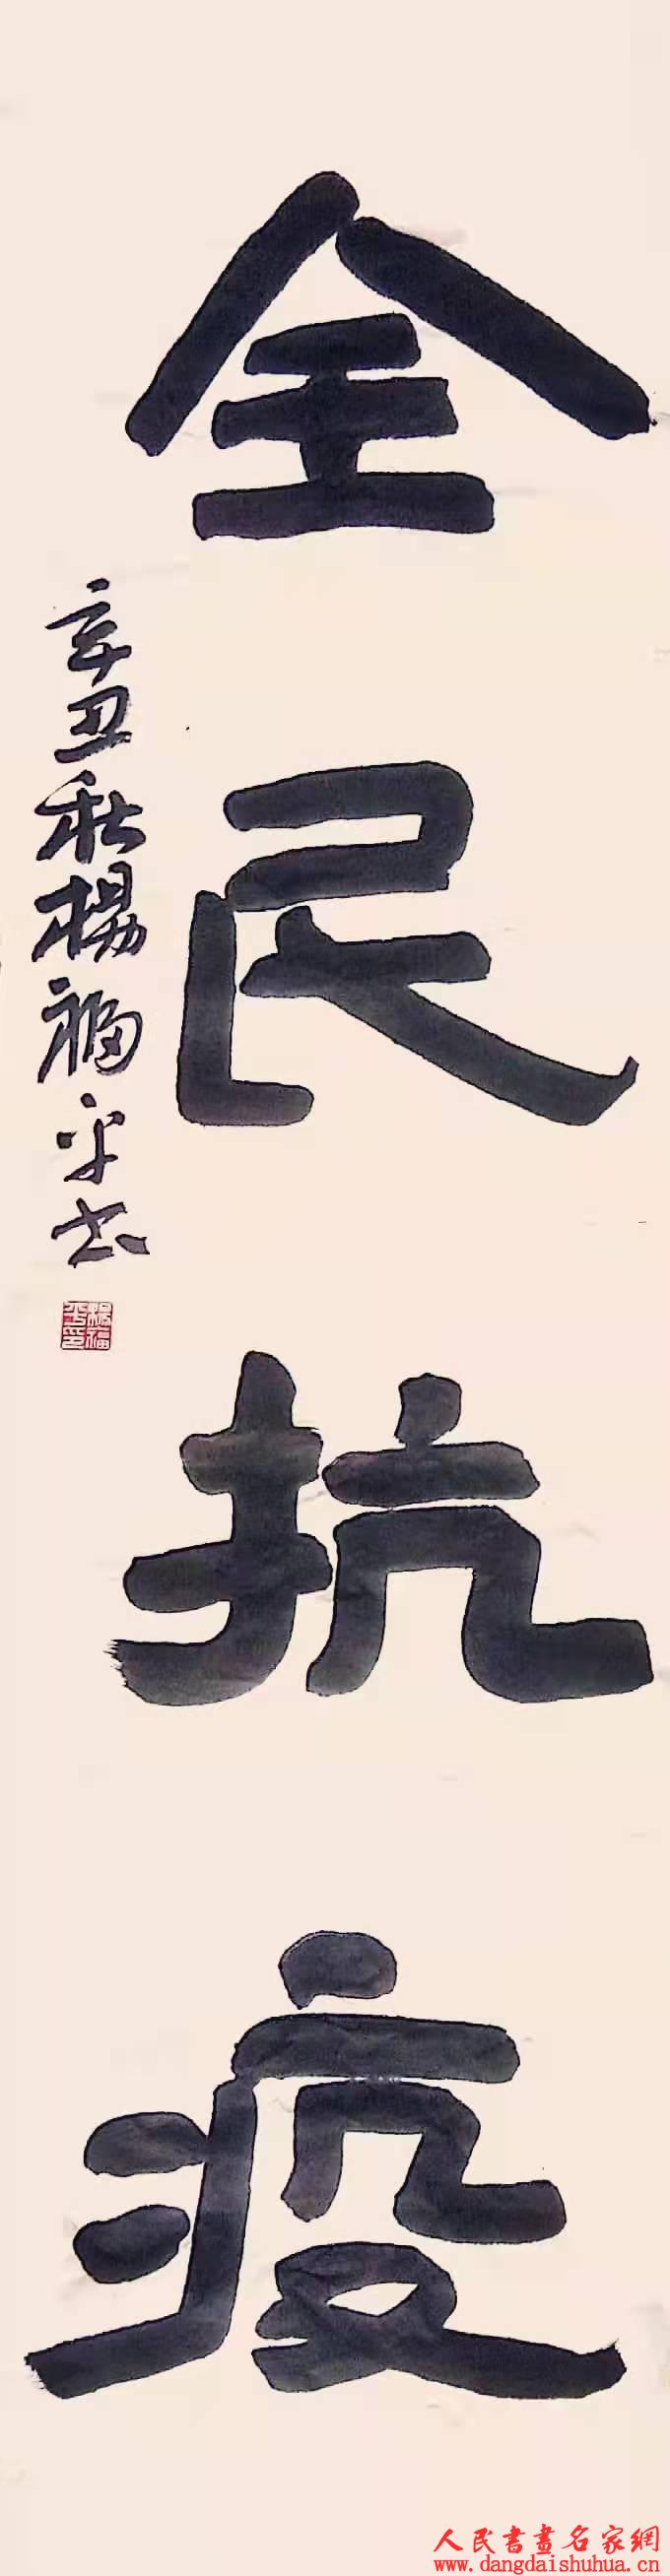 全民抗疫
辛丑秋楊福平书
楊福平印
人民書畫名家網
www.dangdaishuhua.cn